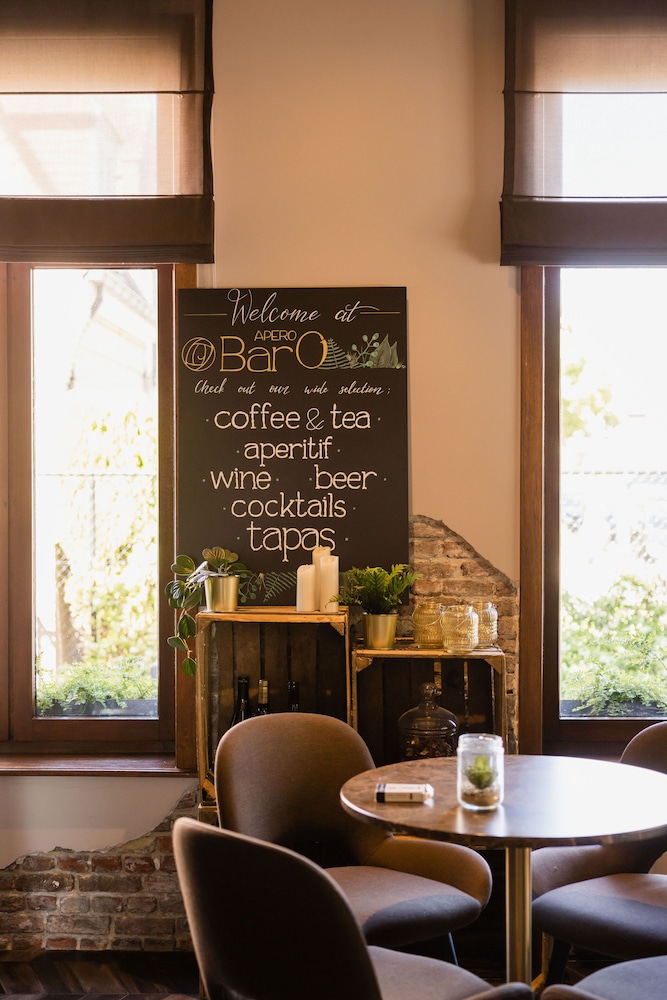 Welcome at
APERO
BarO
Check out our wide selection:
coffee & tea
aperitif
wine · beer
cocktails
tapas